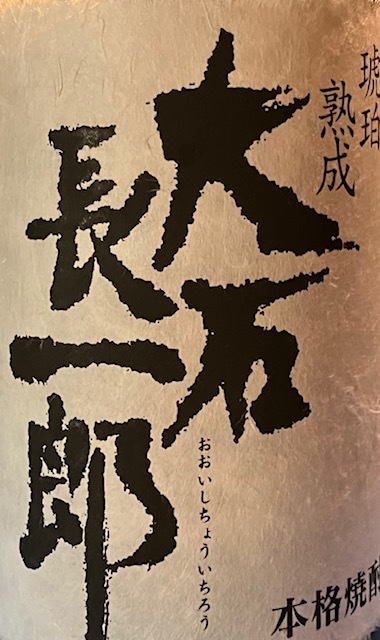 琥珀
熟成
大石
長一郎
おおいしちょういちろう
本格焼酎